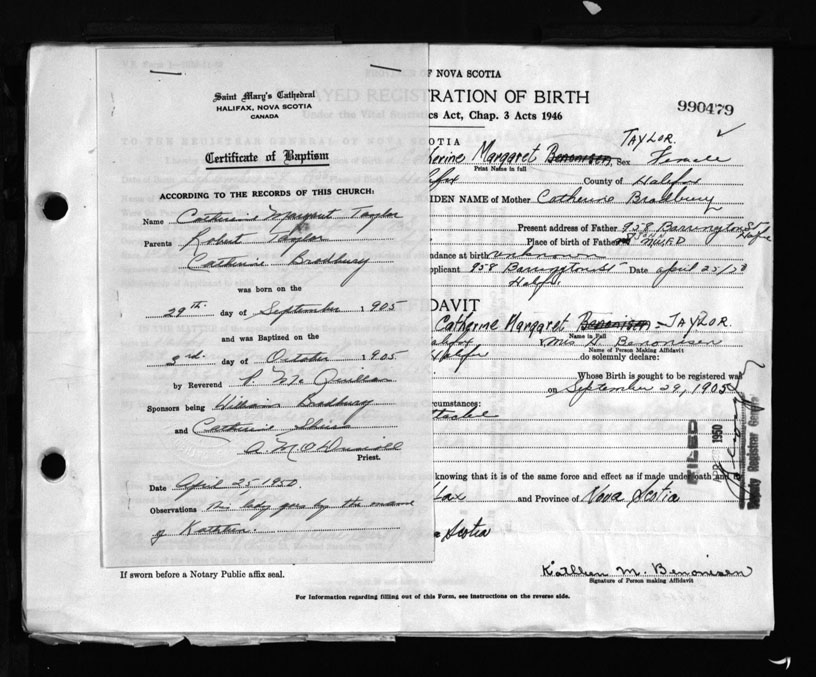 Saint Mary's Cathedral
HALIFAX, NOVA SCOTIA
CANADA
Certificate of Baptism
ACCORDING TO THE RECORDS OF THIS CHURCH:
Name Catherine Margaret Taylor
Parents Robert Taylor
Catherine Bradbury
was born on the
29th day of September 1905
and was Baptized on the
3rd. day of October 1905
by Reverend P. McQuillan
Sponsors being William Bradbury
and Catherine
Priest.
Date April 25, 1950.
Observations This lady goes by the name
of Kathleen.
If sworn before a Notary Public affix seal.
OF NOVA SCOTIA
AYED REGISTRATION OF BIRTH
990479
Under the Vital Statistics Act, Chap. 3 Acts 1946
COTIA
TAYLOR.
herine Margaret Benonisen Sex Female
Print Name in full
lifax County of Halifax
IDEN NAME of Mother Catherine Bradbury
Present address of Father 958 Barrington St
Halifx
Place of birth of Father NWFD
ndance at birth unknown
pplicant 958 Barrington St Date April 25/50
Halifx.
DAVIT
Catherine Margaret Benonisen - TAYLOR.
Name in Full
alifax Mrs Benonisen
Name of Person Making Affidavit
Halifx do solemnly declare:
Whose Birth is sought to be registered was
on September 29, 1905
rcumstances:
FILED
1950
Deputy Registrar General
knowing that it is of the same force and effect as if made under oath and
fax and Province of Nova Scotia
Scotia
Kathleen M. Benonisen
Signature of Person making Affidavit
For Information regarding filling out of this Form, see instructions on the reverse side.